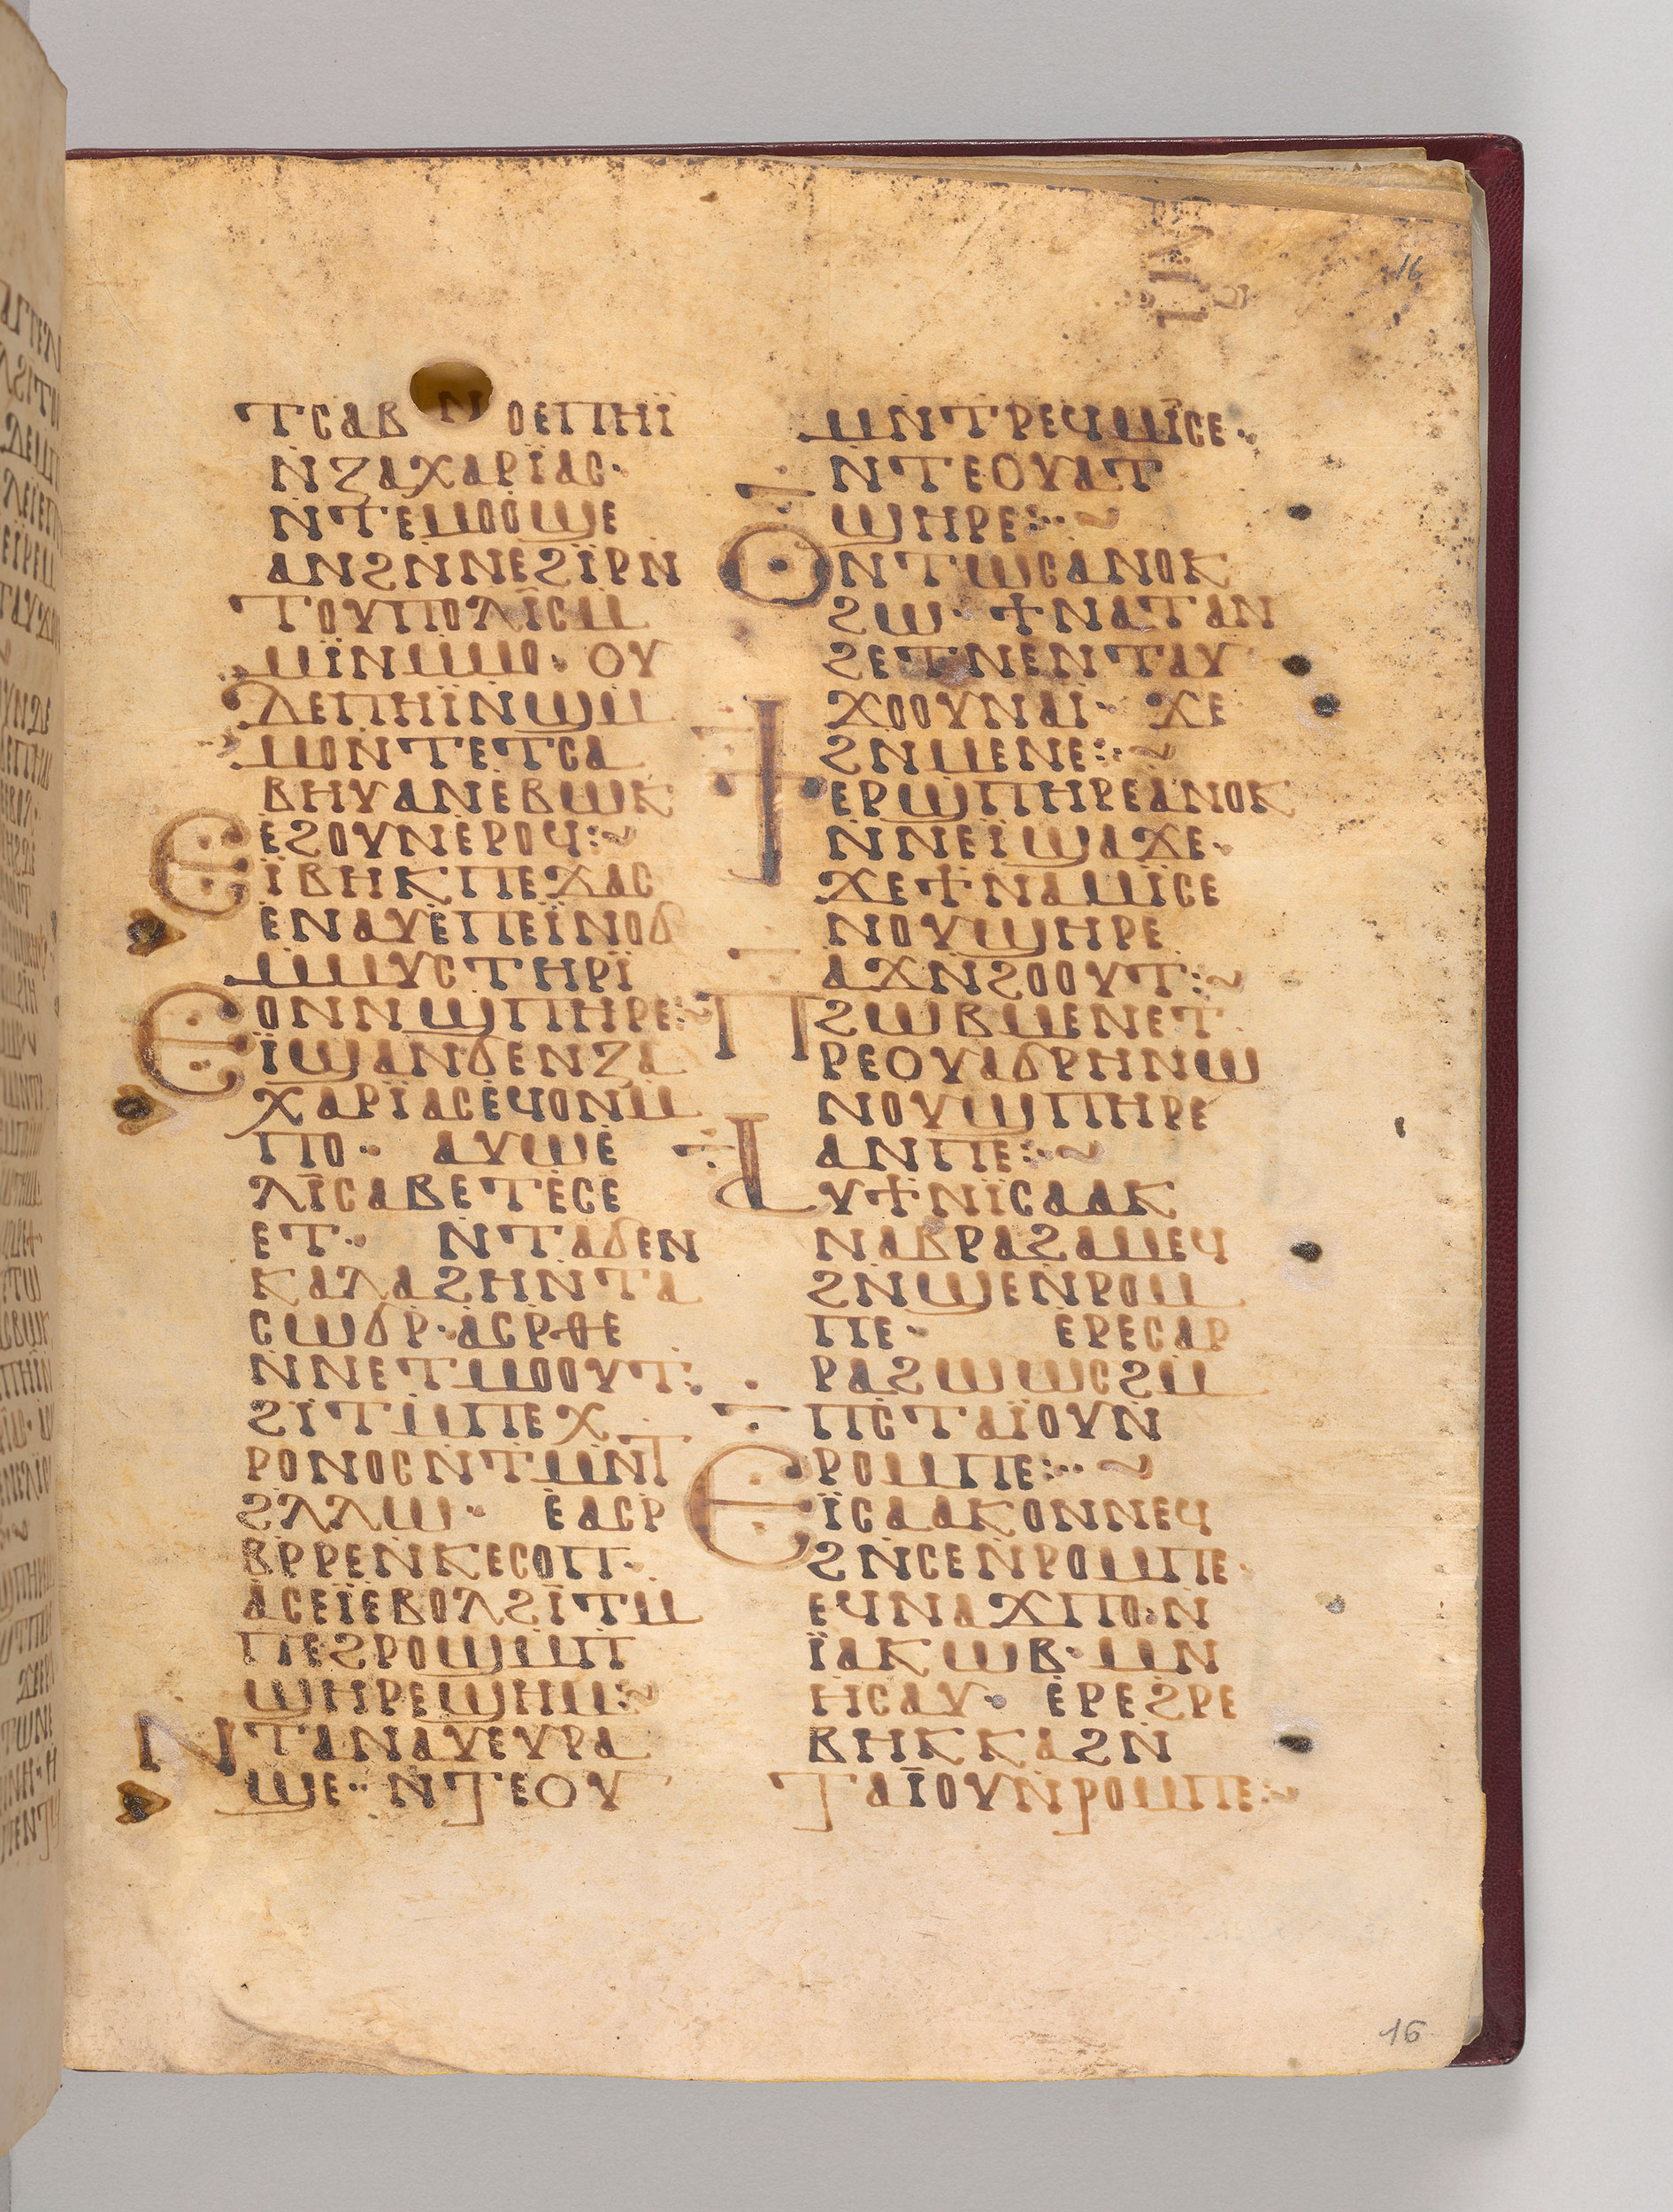 ⲧⲥⲁⲃ ⲛ ⲟⲉⲡⲏⲓ̈
ⲛⲍⲁⲭⲁⲣⲓ̈ⲁⲥ·
ⲛⲧⲉⲙⲟⲟϣⲉ
ⲁⲛϩⲛⲛⲉϩⲓ̈ⲣⲛ
ⲧⲟⲩⲡⲟⲗⲓ̈ⲥⲙ
ⲙⲓ̈ⲛⲙⲙⲟ· ⲟⲩ
ⲇⲉⲡⲏⲓ̈ⲛϣⲙ
ⲙⲟⲛⲧⲉⲧⲥⲁ
ⲃⲏⲩⲁⲛⲉⲃⲱⲕ
ⲉϩⲟⲩⲛⲉⲣⲟϥ:~
ⲉⲓ̈ⲃⲏⲕⲡⲉϫⲁⲥ
ⲉⲛⲁⲩⲉⲡⲉⲓ̈ⲛⲟϭ
ⲙⲙⲩⲥⲧⲏⲣⲓ̈
ⲟⲛⲛϣⲡⲏⲣⲉ:~
ⲉⲓ̈ϣⲁⲛϭⲉⲛⲍⲁ
ⲭⲁⲣⲓ̈ⲁⲥⲉϥⲟⲛⲙ
ⲡⲟ· ⲁⲩⲱⲉ
ⲗⲓ̈ⲥⲁⲃⲉⲧⲉⲥⲉ
ⲉⲧ· ⲛⲧⲁϭⲉⲛ
ⲕⲁⲗⲁϩⲏⲛⲧⲁ
ⲥⲱϭⲣ·ⲁⲥⲣⲑⲉ
ⲛⲛⲉⲧⲙⲟⲟⲩⲧ:
ϩⲓⲧⲙⲡⲉⲭ
ⲣⲟⲛⲟⲥⲛⲧⲙⲛⲧ
ϩⲗⲗⲱ· ⲉⲁⲥⲣ
ⲃⲣⲣⲉⲛⲕⲉⲥⲟⲡ·
ⲁⲥⲉⲓ̈ⲉⲃⲟⲗϩⲓ̈ⲧⲙ
ⲡⲉϩⲣⲟϣⲙⲡ
ϣⲏⲣⲉϣⲏⲙ:~
ⲛⲧⲁⲛⲁⲩⲉⲩⲣⲁ
ϣⲉ·· ⲛⲧⲉⲟⲩ
ⲙⲛⲧⲣⲉϥⲙⲓ̈ⲥⲉ··
ⲛⲧⲉⲟⲩⲁⲧ
ϣⲏⲣⲉ:··~
ⲟⲛⲧⲱⲥⲁⲛⲟⲕ
ϩⲱ· ϯⲛⲁⲧⲁⲛ
ϩⲉⲧⲛⲉⲛⲧⲁⲩ
ϫⲟⲟⲩⲛⲁⲓ· ϫⲉ
ϩⲛⲙⲉⲛⲉ:··~
ϯⲉⲣϣⲡⲏⲣⲉⲁⲛⲟⲕ
ⲛⲛⲉⲓ̈ϣⲁϫⲉ·
ϫⲉϯⲛⲁⲙⲓ̈ⲥⲉ
ⲛⲟⲩϣⲏⲣⲉ
ⲁϫⲛϩⲟⲟⲩⲧ:~
ⲡϩⲱⲃⲙⲉⲛⲉⲧ
ⲣⲉⲟⲩⲁϭⲣⲏⲛⲱ
ⲛⲟⲩϣⲡⲏⲣⲉ
ⲁⲛⲡⲉ:·~
ⲁⲩϯⲛⲓ̈ⲥⲁⲁⲕ
ⲛⲁⲃⲣⲁϩⲁⲙⲉϥ
ϩⲛϣⲉⲛⲣⲟⲙ
ⲡⲉ· ⲉⲣⲉⲥⲁⲣ
ⲣⲁϩⲱⲱⲥϩⲙ
ⲡⲥⲧⲁⲓ̈ⲟⲩⲛ
ⲣⲟⲙⲡⲉ:··~
ⲉⲓ̈ⲥⲁⲁⲕⲟⲛⲛⲉϥ
ϩⲛⲥⲉⲛⲣⲟⲙⲡⲉ·
ⲉϥⲛⲁϫⲡⲟ·ⲛ
ⲓ̈ⲁⲕⲱⲃ·ⲙⲛ
ⲏⲥⲁⲩ· ⲉⲣⲉϩⲣⲉ
ⲃⲏⲕⲕⲁϩⲛ
ⲧⲁⲓ̈ⲟⲩⲛⲣⲟⲙⲡⲉ:~
16
16